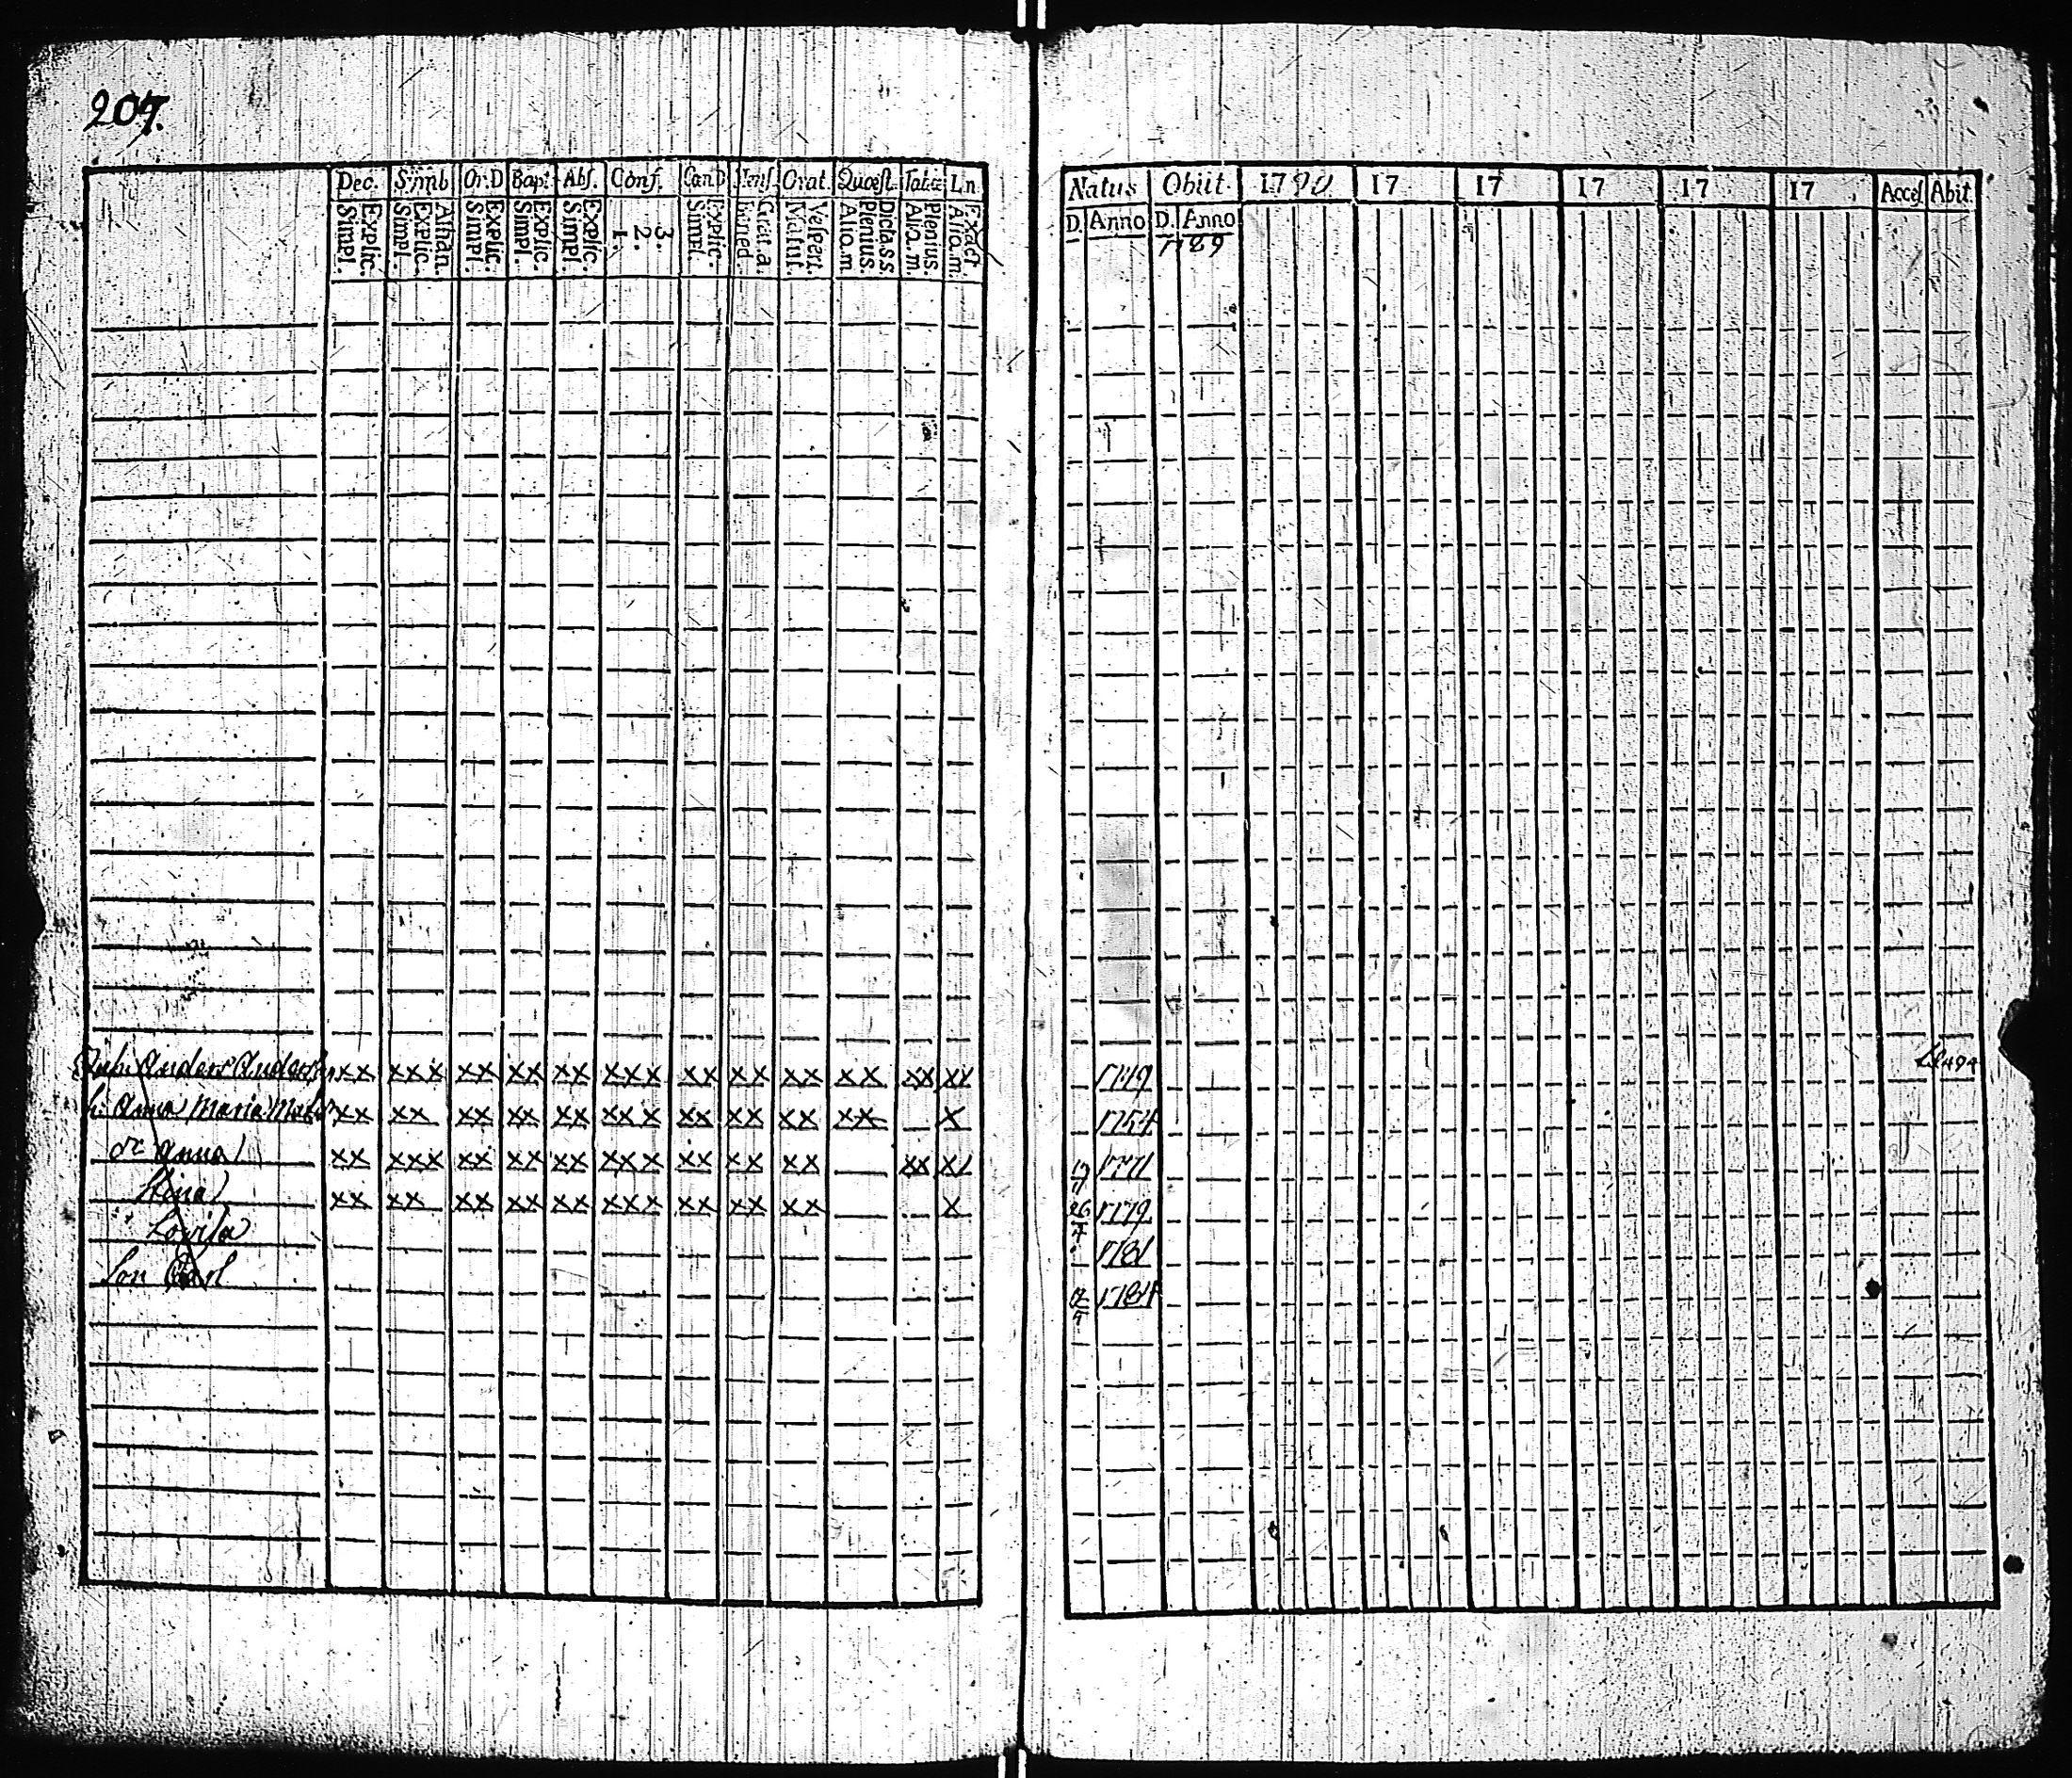 207.
Dec. Simb Or.D Bapt. Abs. Conf. Can.D Orat. Quæst. Tab.æ Ln.
Explic. Simpl. Athan. Explic. Simpl. Explic. Simpl. Explic. Simpl. Explic. Simpl. 3. 2. 1. Explic. Simpl. Grat.a. Vespert. Matut. Dicta.ss. Plenius. Alio.m. Plenius. Alio.m. Exact Alio.m.
Natus Obiit. 1790 17 17 17 17 17 Acces Abit.
D. Anno D. Anno
1789
Anders Anders xx xxx xx xx xx xxx xx xx xx xx xx xx 1749
h. Anna Maria xx xx xx xx xx xxx xx xx xx xx x 1754
dr Anna xx xxx xx xx xx xxx xx xx xx xx xx 1771
Stina xx xx xx xx xx xxx xx xx xx x 26 1779
Lovisa 1781
Son Carl 1784